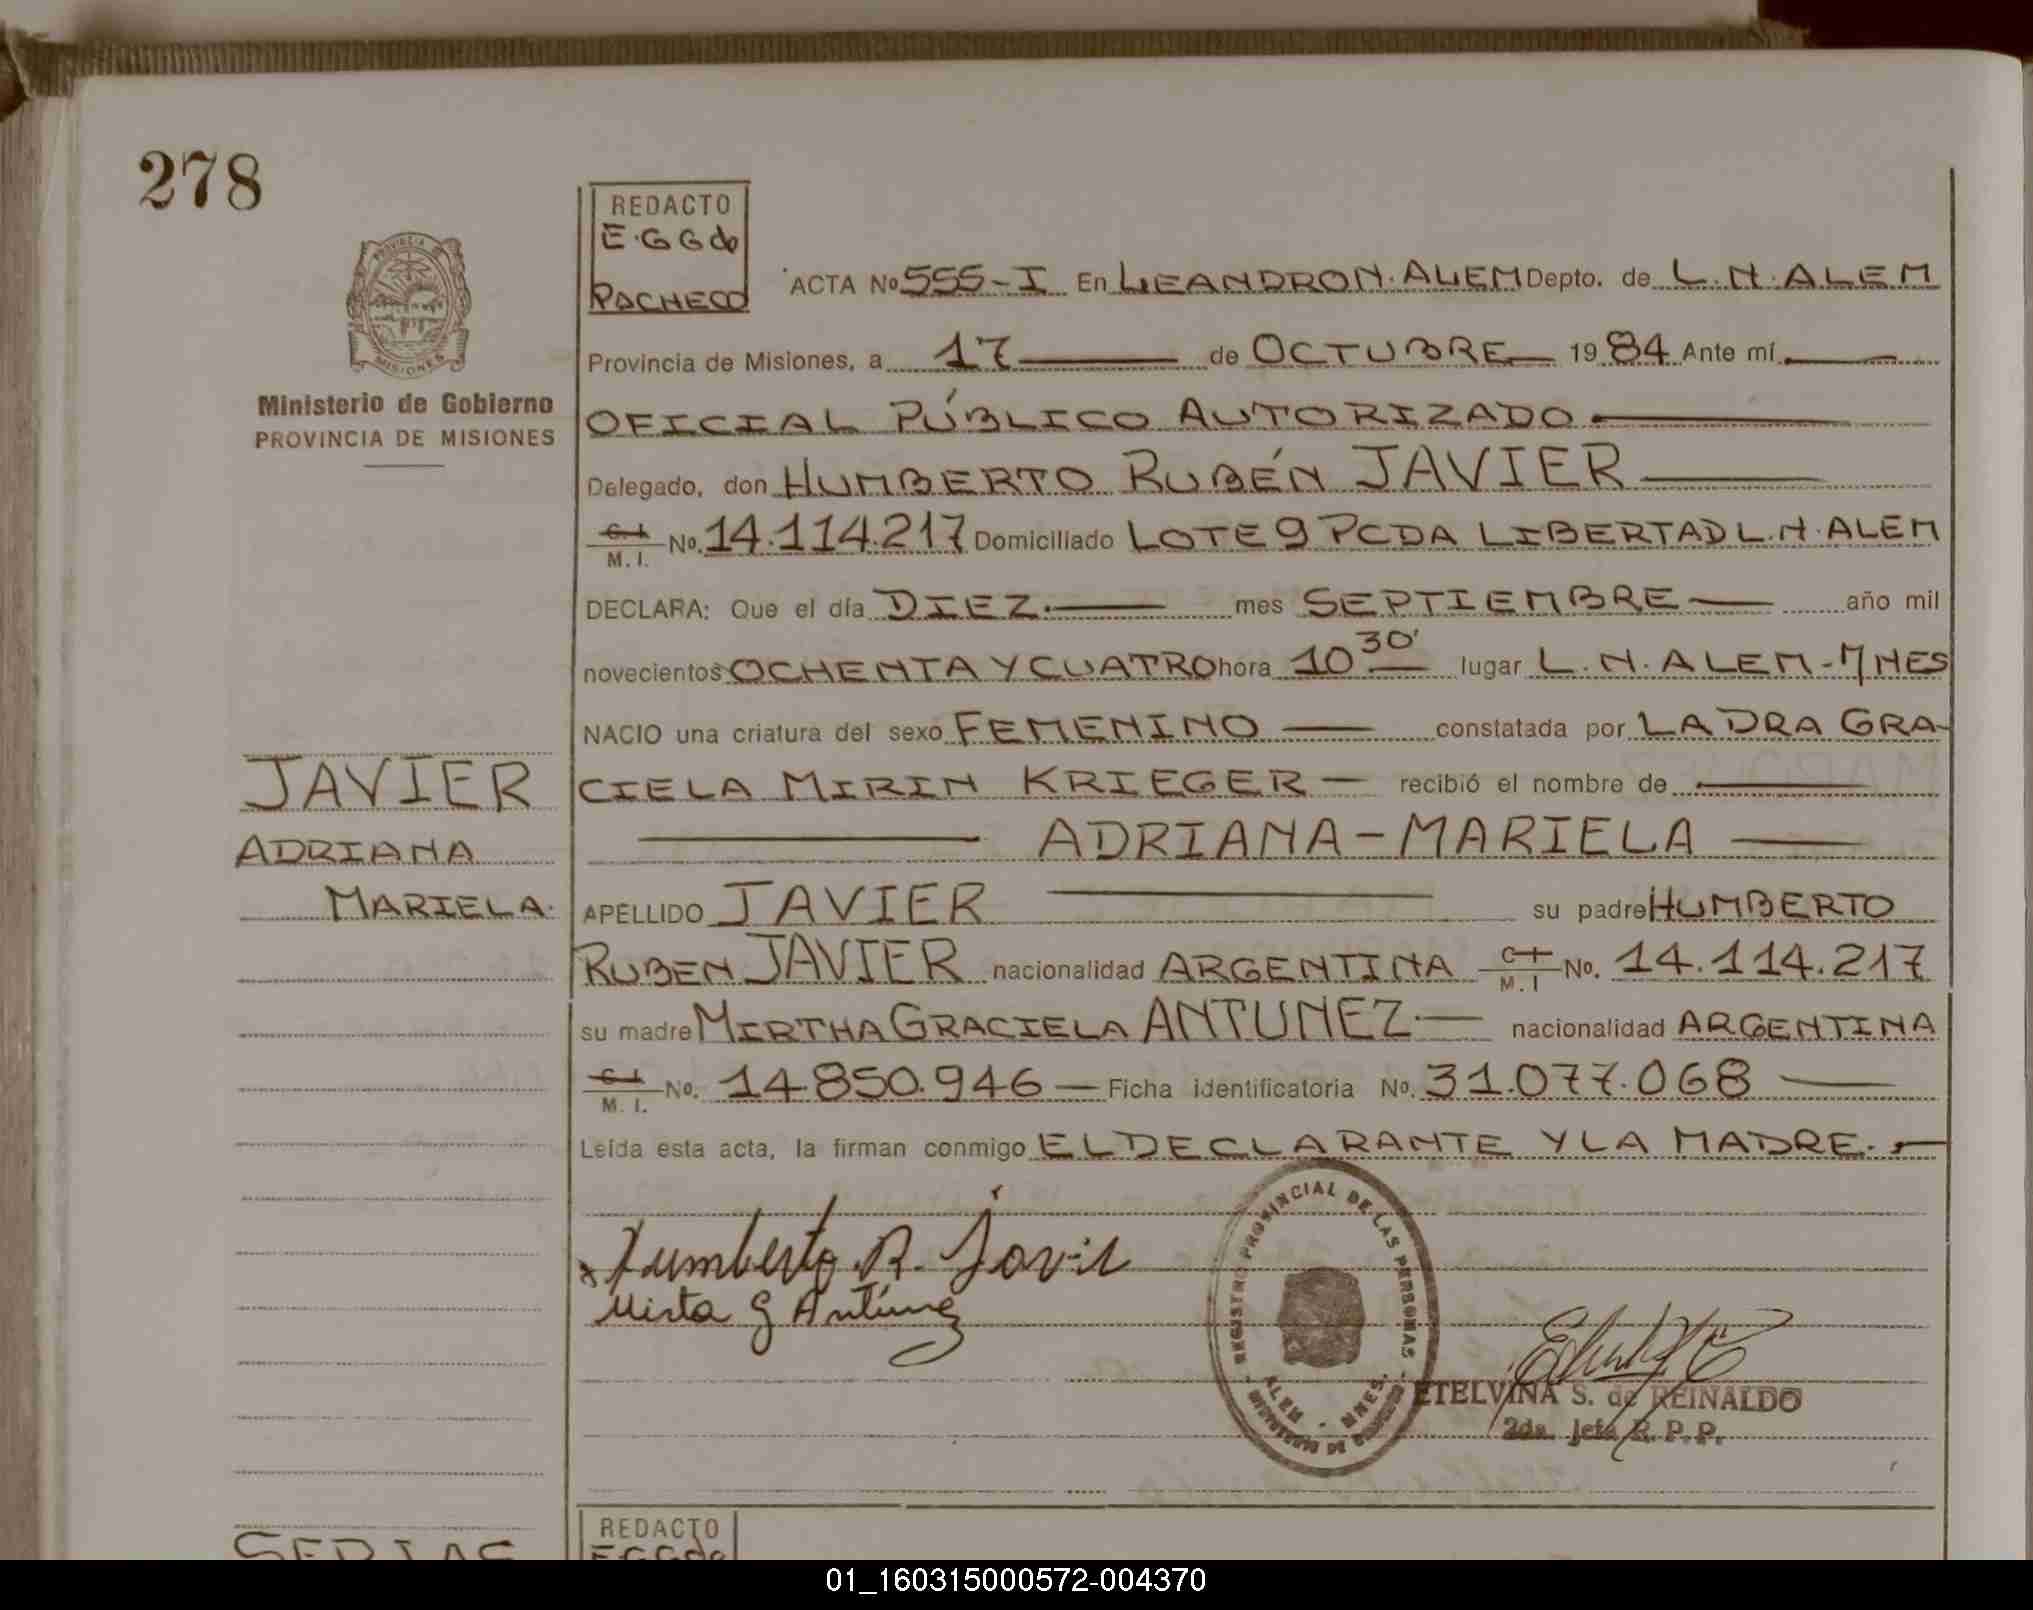 278
REDACTO
E.GGdo
PACHECO
ACTA No 555-I En LEANDRO N. ALEM Depto. de L.N.ALEM
PROVINCIA
MISIONES
Ministerio de Gobierno
PROVINCIA DE MISIONES
Provincia de Misiones, a 17 de OCTUBRE 1984 Ante mí
OFICIAL PÚBLICO AUTORIZADO
Delegado, don HUMBERTO RUBÉN JAVIER
C.I. M.I. No. 14.114.217 Domiciliado LOTE 9 PCDA LIBERTAD L.N.ALEM
DECLARA: Que el día DIEZ. mes SEPTIEMBRE año mil
novecientos OCHENTA Y CUATRO hora 10 30' lugar L.N.ALEM-MNES
NACIO una criatura del sexo FEMENINO constatada por LA DRA GRA-
CIELA MIRIN KRIEGER recibió el nombre de
ADRIANA-MARIELA
JAVIER
ADRIANA
MARIELA.
APELLIDO JAVIER su padre HUMBERTO
RUBEN JAVIER nacionalidad ARGENTINA C.I. M.I No. 14.114.217
su madre MIRTHA GRACIELA ANTUNEZ. nacionalidad ARGENTINA
C.I. M.I. No. 14.850.946 Ficha identificatoria No. 31.077.068
Leída esta acta, la firman conmigo EL DECLARANTE Y LA MADRE.
x Humberto R. Javier
Mirta G Antúnez
REGISTRO PROVINCIAL DE LAS PERSONAS
ALEM - MNES.
MINISTERIO DE GOBIERNO
ETELVINA S. de REINALDO
2da. Jefa R.P.P.
REDACTO
01_160315000572-004370